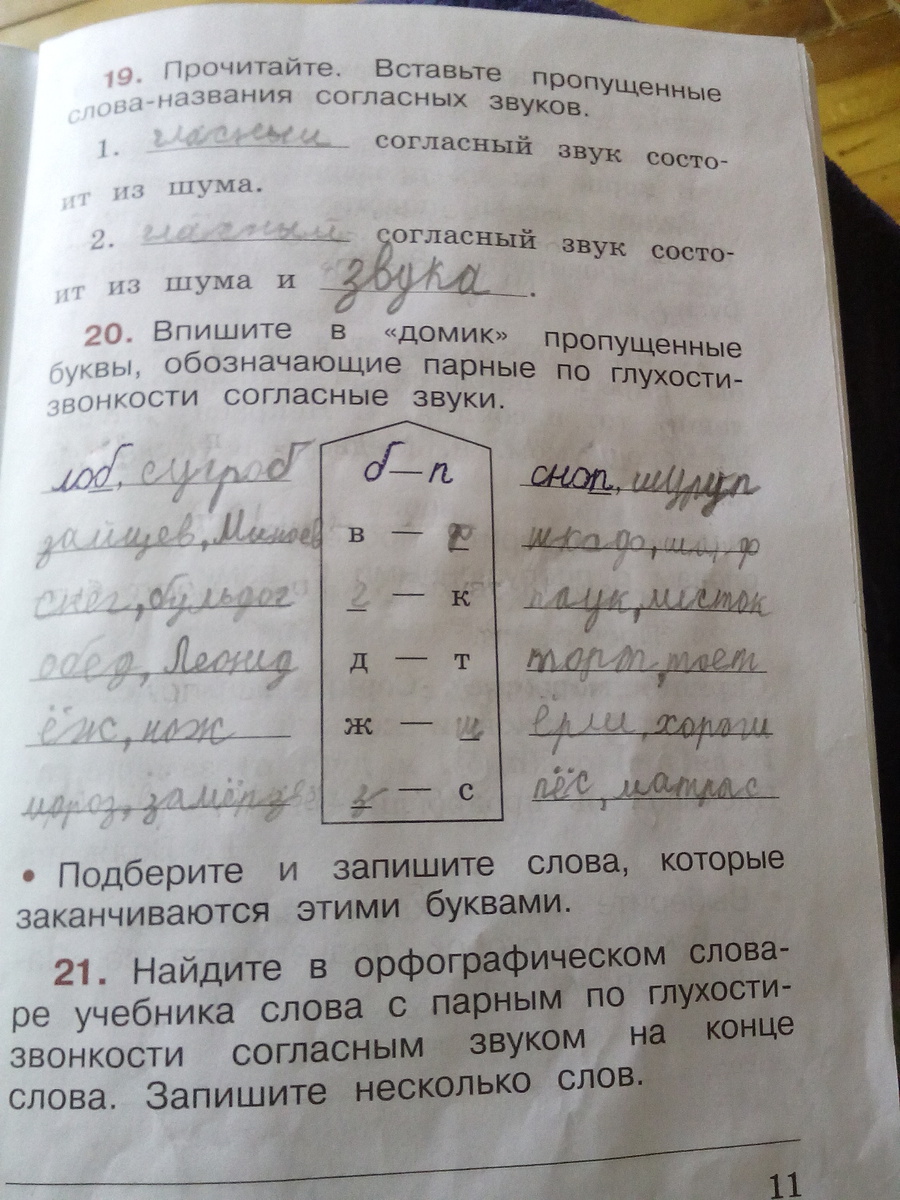 19. Прочитайте. Вставьте пропущенные
слова-названия согласных звуков.
1. гласный согласный звук состо-
ит из шума.
2. гласный согласный звук состо-
ит из шума и звука.
20. Впишите в «домик» пропущенные
буквы, обозначающие парные по глухости-
звонкости согласные звуки.
лоб, сугроб б — п сноп, шуруп
зайцев, в — шкаф, шарф
снег, бульдог г — к паук, листок
обед, Леонид д — т торт,
ёж, нож ж — ш ёрш, хорош
мороз, з — с пёс, матрас
• Подберите и запишите слова, которые
заканчиваются этими буквами.
21. Найдите в орфографическом слова-
ре учебника слова с парным по глухости-
звонкости согласным звуком на конце
слова. Запишите несколько слов.
11